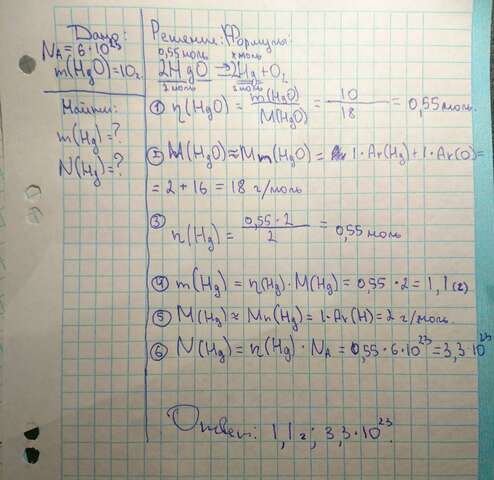 Дано:
N_A = 6·10²³
m(HgO) = 10г.
Найти:
m(Hg) = ?
N(Hg) = ?
Решение: Формулы:
0,55 моль x моль
2HgO → 2Hg + O₂
2 моль 2 моль
① n(HgO) = m(HgO) / M(HgO) = 10 / 18 = 0,55 моль.
② M(HgO) ≈ Mm(HgO) = 1·Ar(Hg) + 1·Ar(O) =
= 2 + 16 = 18 г/моль
③ n(Hg) = 0,55·2 / 2 = 0,55 моль
④ m(Hg) = n(Hg)·M(Hg) = 0,55·2 = 1,1 (г)
⑤ M(Hg) ≈ Mr(Hg) = 1·Ar(H) = 2 г/моль.
⑥ N(Hg) = n(Hg)·N_A = 0,55·6·10²³ = 3,3·10²³
Ответ: 1,1 г; 3,3·10²³.